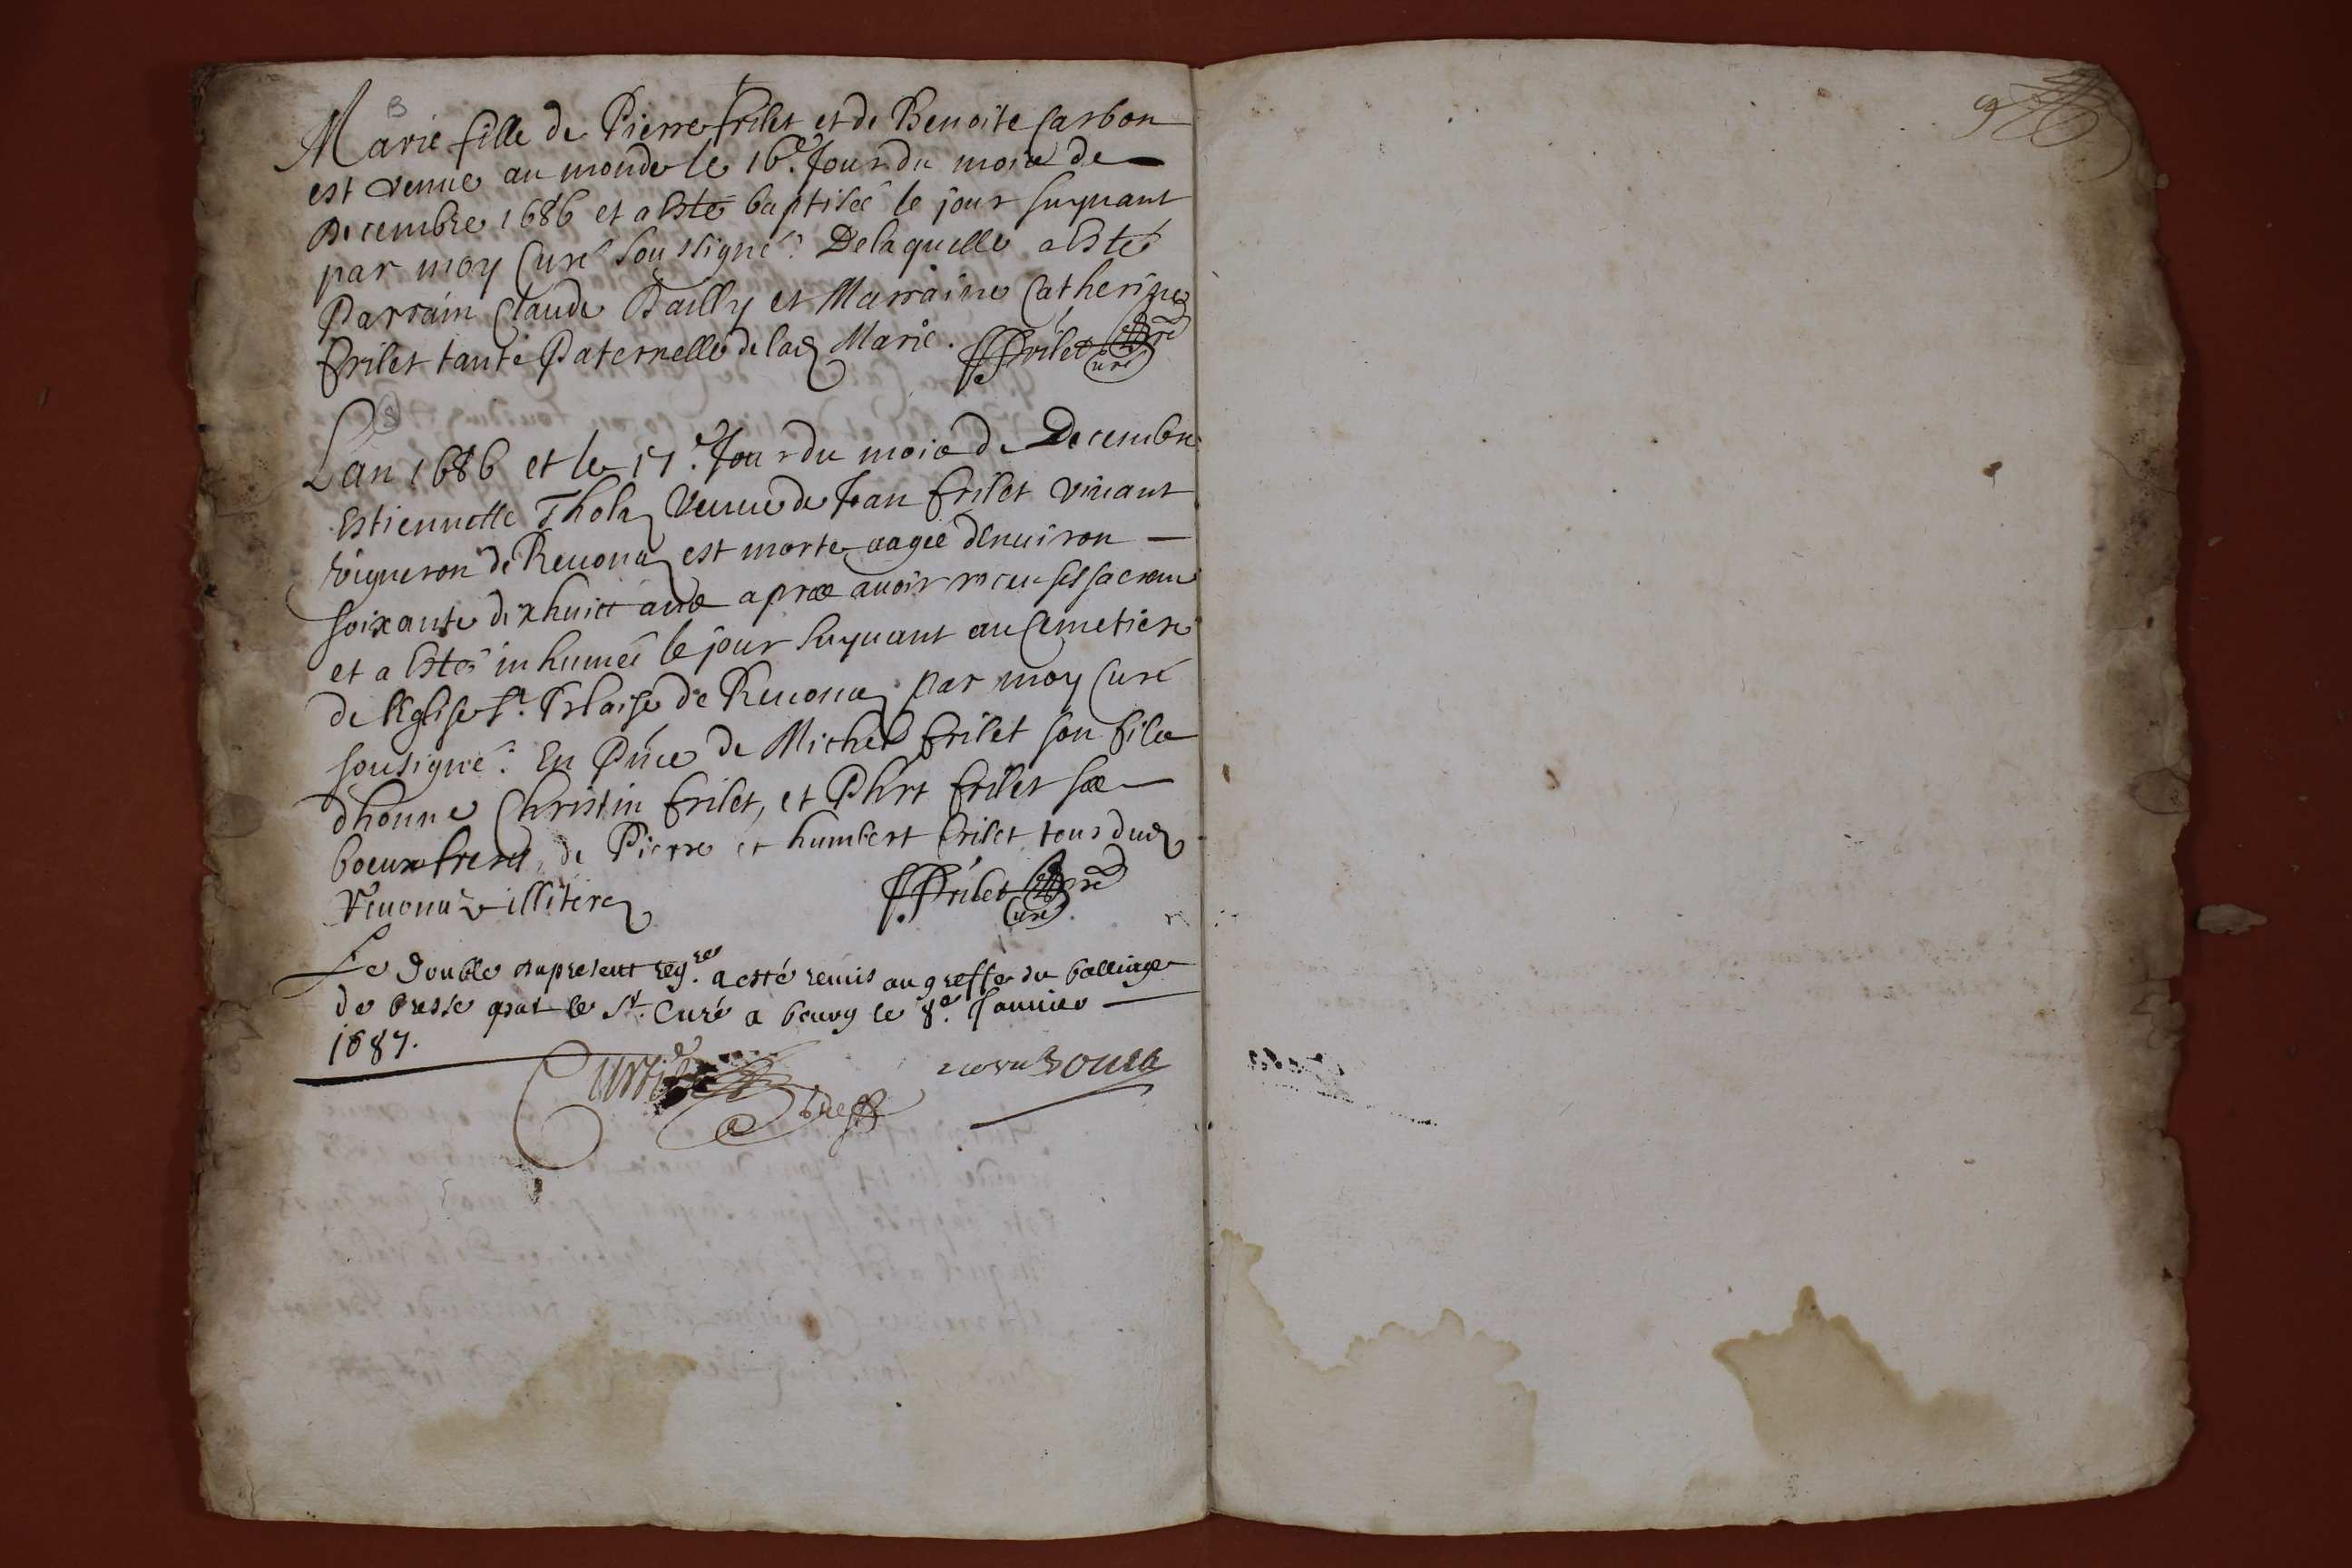 B
Marie fille de Pierre frilet et de Benoite Carbon
est venue au monde le 16e. Jour du mois de
Decembre 1686 et a Esté baptisée le jour suyuant
par moy Curé Soussigné. De laquelle a Esté
Parrain Claude Bailly et Marraine Catherine
frilet tante Paternelle de lad Marie. Frilet Pre
Curé
S
Lan 1686 et le 17e. Jour du mois de Decembre
Estiennette Thola Veuue de Jean frilet viuant
vigneron de Reuona est morte aagée denuiron
soixante dixhuict ans apres auoir receu ses sacrem
et a Esté inhumée le jour suyuant au Cemetiere
de lEglise St. Blaise de Reuona par moy Curé
sousigné. En Pnce de Michel frilet son fils
dhonne Christin frilet, et Phrt frilet ses
boeux freres, de Pierre et humbert frilet tous dud
Reuona illiterez
Frilet Pre
Curé
Le double du present regre. a esté remis au greffe du balliage
de bresse par le Sr. Curé a bourg le 8e. Januier
1687.